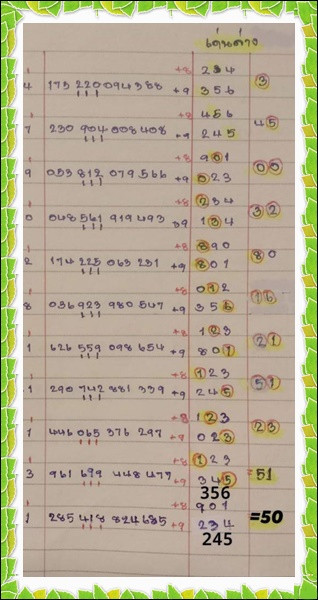 เด่นล่าง
+8 234
4 173 220 094 388 +9 356 3
+8 456
7 230 904 008 408 +9 245 45
+8 901
9 053 812 079 566 +9 023 00
+8 234
0 048 561 919 493 +9 134 32
+8 890
2 174 225 063 231 +9 801 80
+8 012
8 036 923 980 547 +9 356 16
+8 123
1 626 559 098 654 +9 801 21
+8 123
1 290 742 881 339 +9 245 51
+8 123
1 446 065 376 297 +9 023 23
+8 123
3 961 699 448 477 +9 345 =51
356
+8 901
1 285 418 824 685 +9 234 =50
245